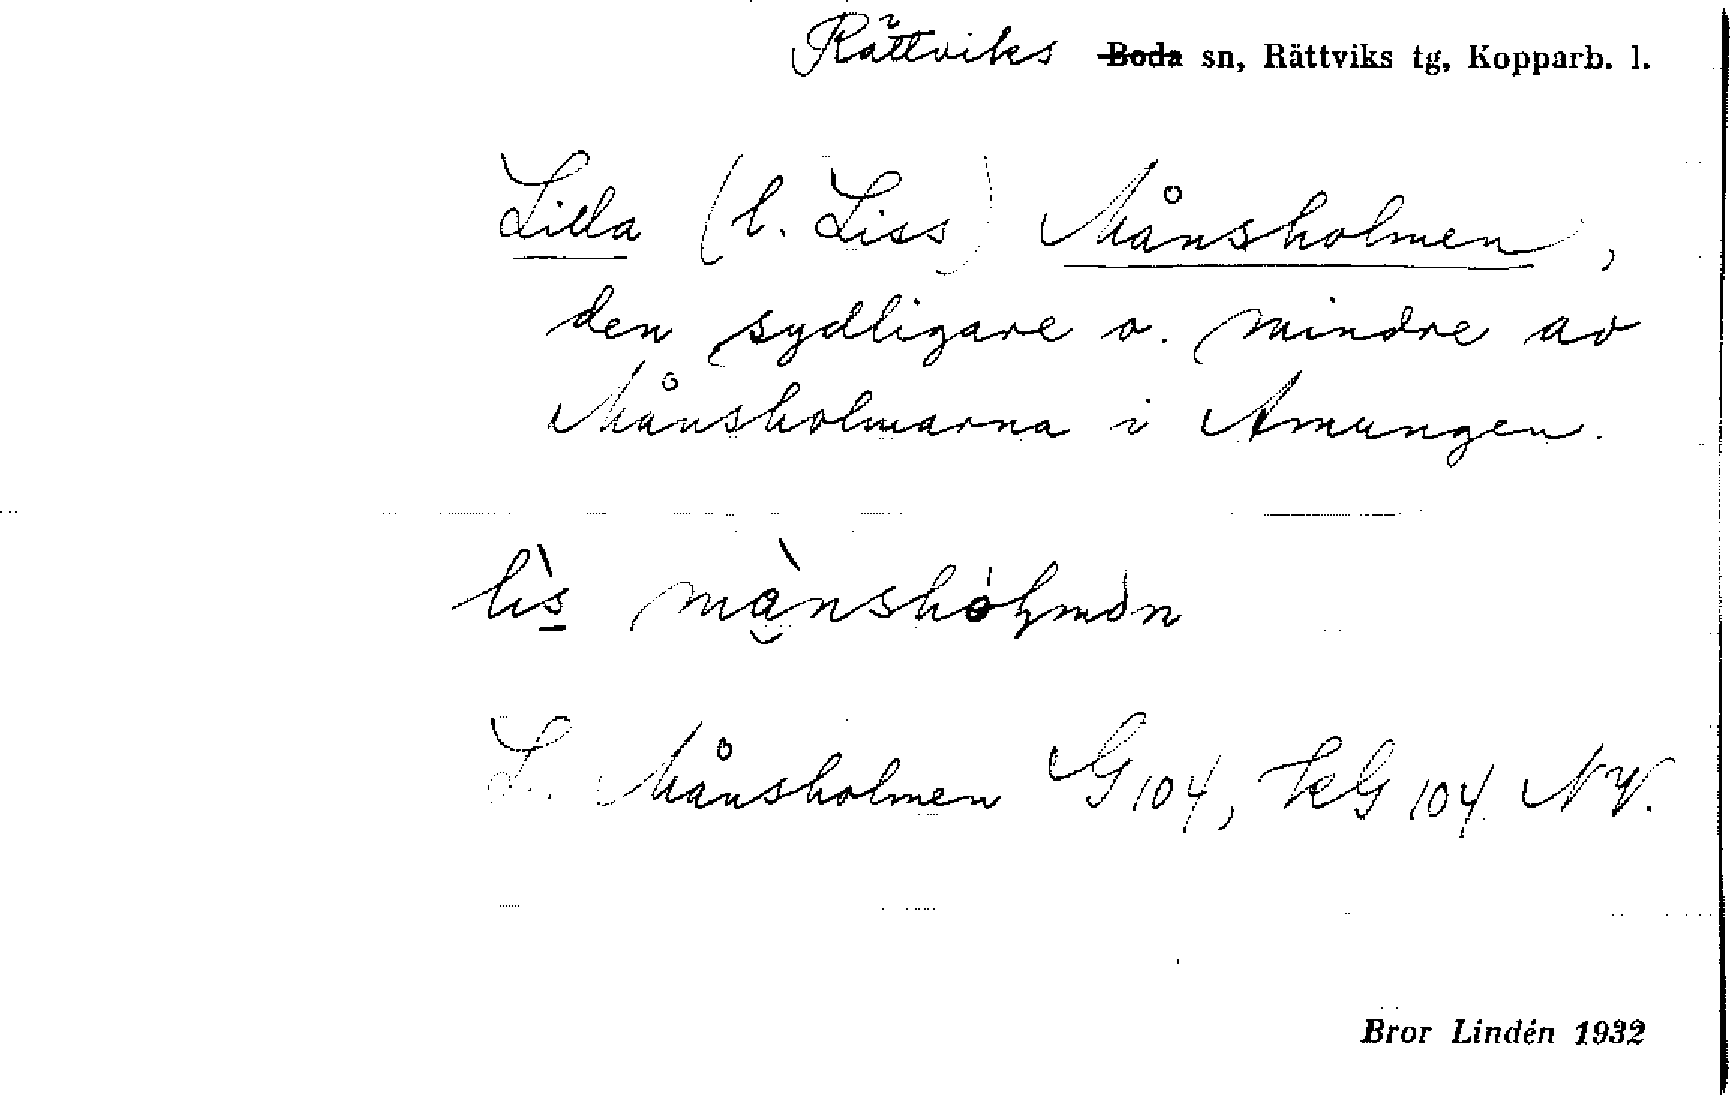 Rättviks Boda sn, Rättviks tg, Kopparb. l.
Lilla (l. Liss) Månsholmen,
den sydligare o. mindre av
Månsholmarna i Amungen.
lìs
L. Månsholmen G 104, kG 104 NV.
Bror Lindén 1932